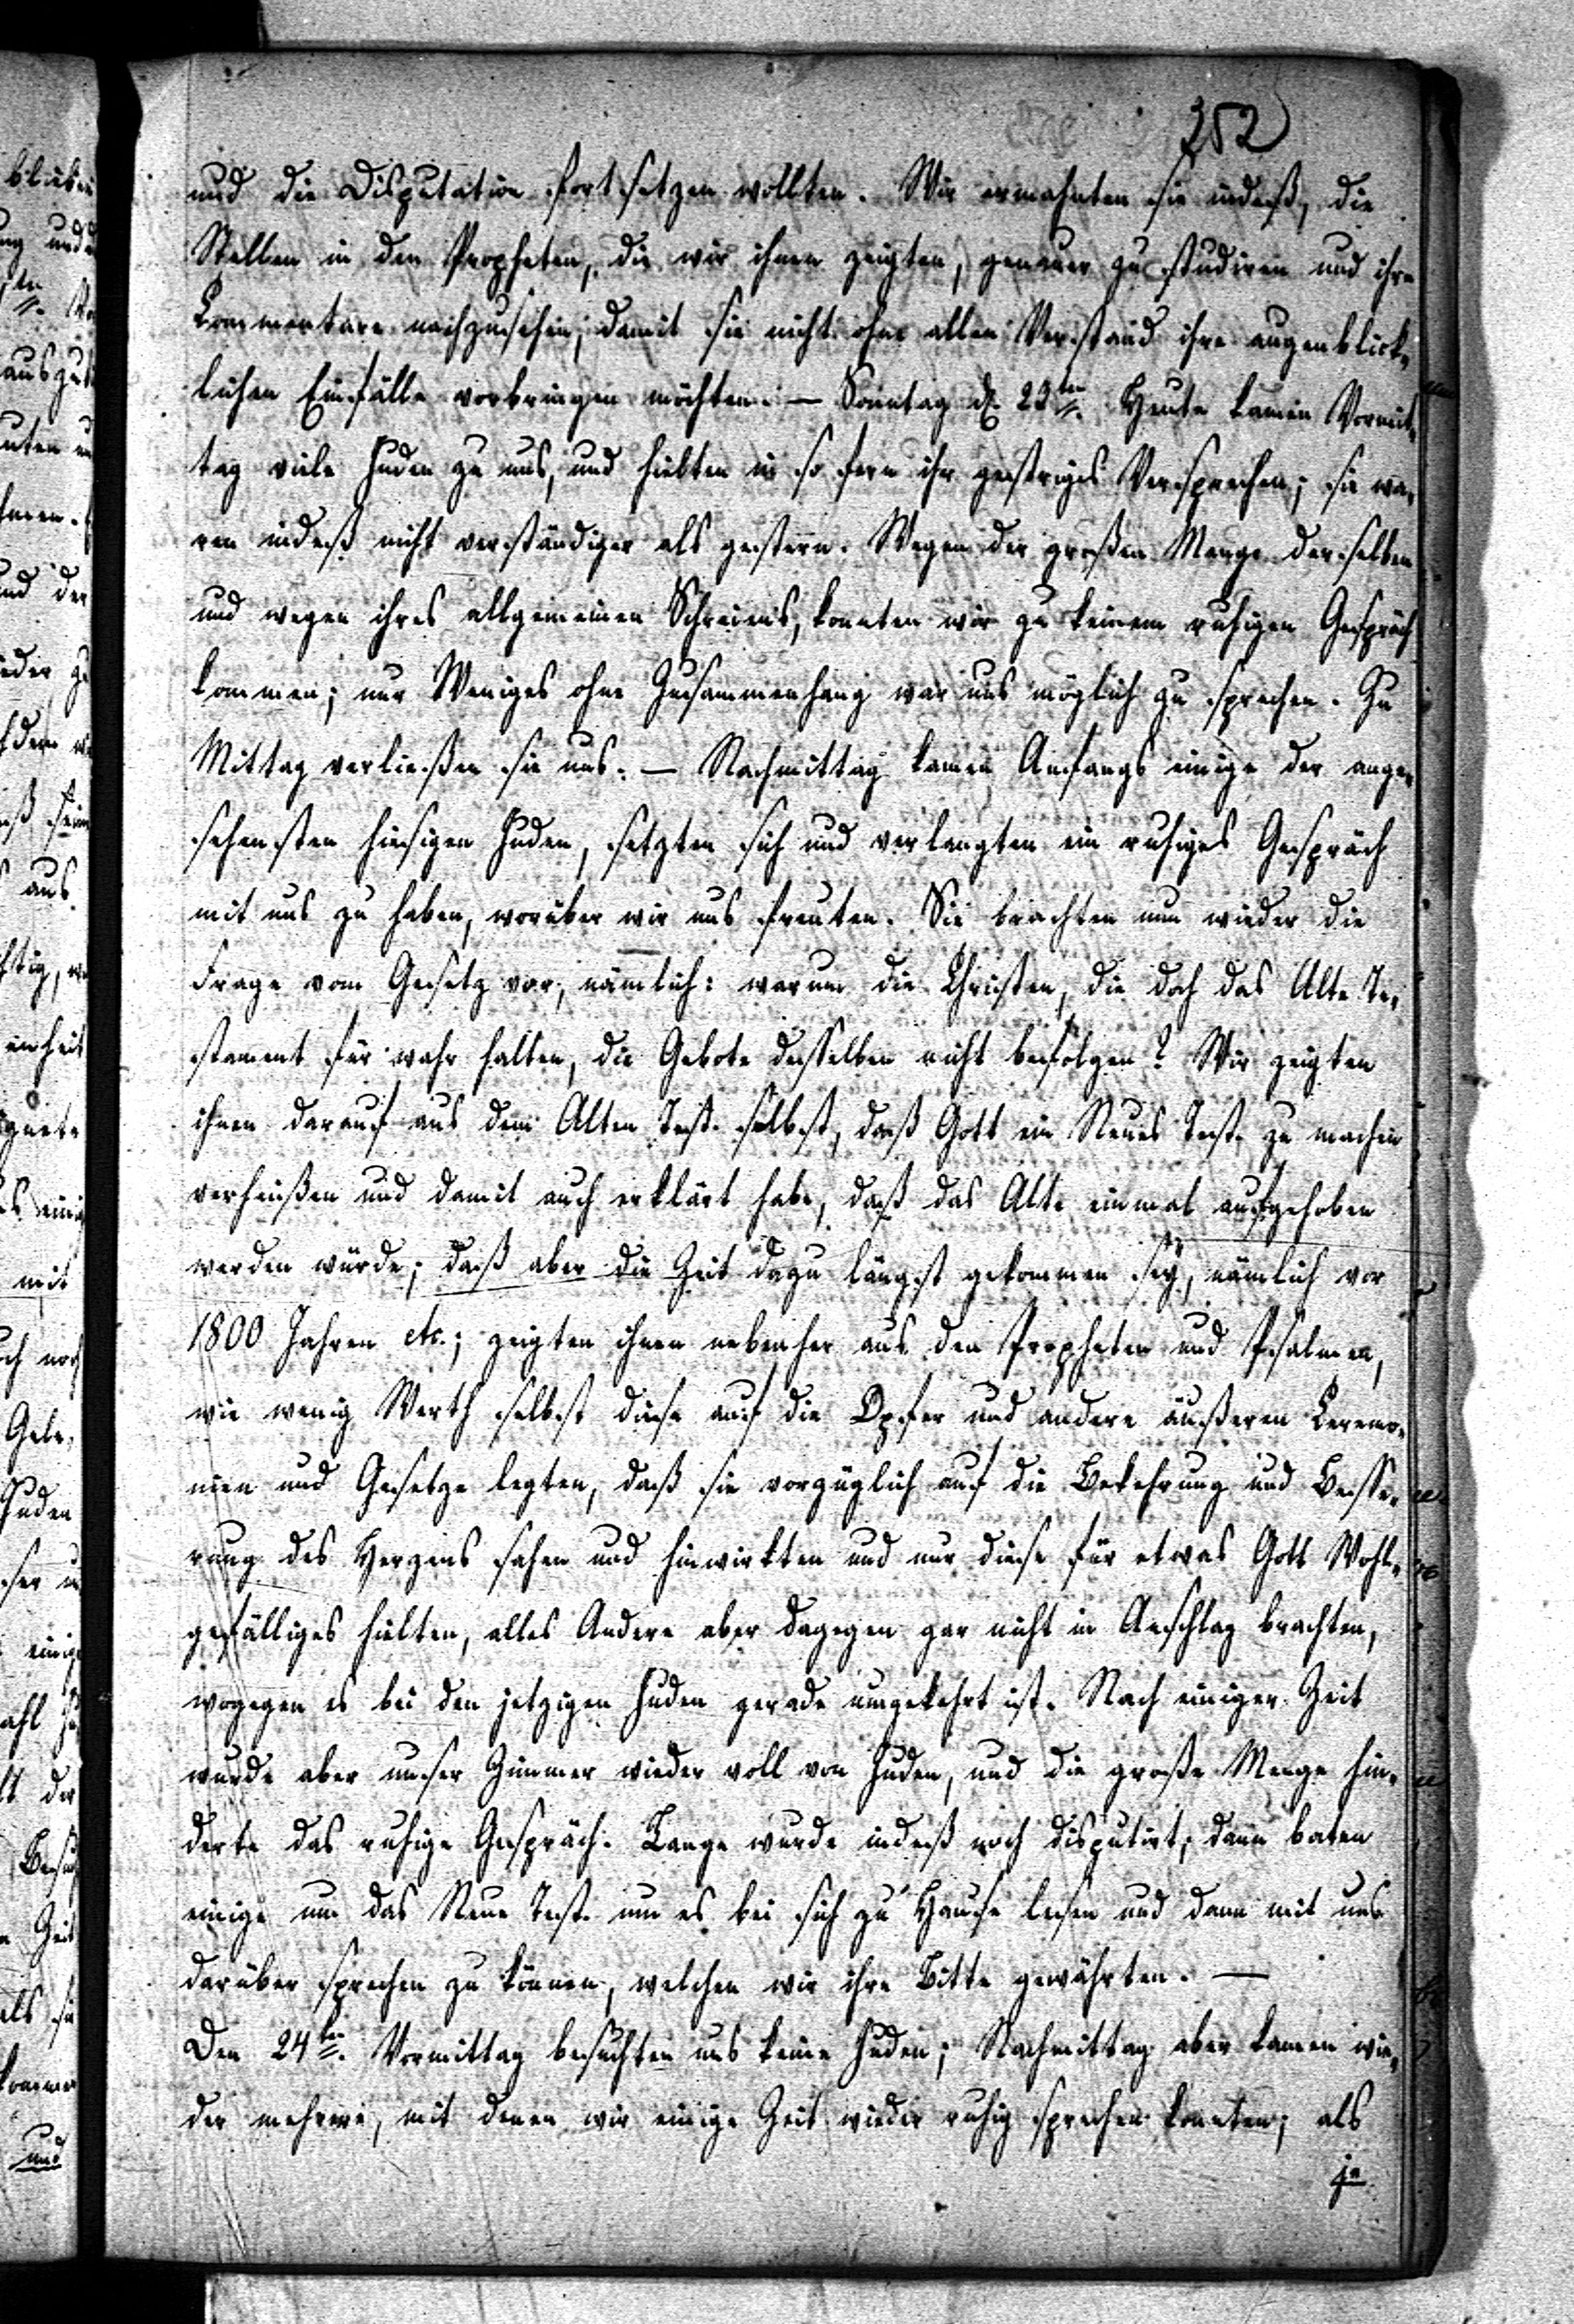 252
und die Disputation fortsetzen wollten. Wir ermahnten sie indeß, die
Stellen in den Propheten, die wir ihnen zeigten, genauer zu studiren und ihre
Commentare nachzusehen, damit sie nicht ohne allen Verstand ihre augenblick-
lichen Einfälle vorbringen möchten. — Sonntag d. 23ten. Heute kamen Vormit-
tag viele Juden zu uns, und hielten in so fern ihr gestriges Versprechen; sie wa-
ren indeß nicht verständiger als gestern. Wegen der großen Menge derselben
und wegen ihres allgemeinen Schreiens, konnten wir zu keinem ruhigen Gespräch
kommen; nur Weniges ohne Zusammenhang war uns möglich zu sprechen. Zu
Mittag verließen sie uns. — Nachmittag kamen Anfangs einige der ange-
sehensten hiesigen Juden, setzten sich und verlangten ein ruhiges Gespräch
mit uns zu haben, worüber wir uns freuten. Sie brachten nun wieder die
Frage vom Gesetz vor, nämlich: warum die Christen, die doch das Alte Te-
stament für wahr halten, die Gebote desselben nicht befolgen? Wir zeigten
ihnen darauf aus dem Alten Test. selbst, daß Gott ein Neues Test. zu machen
verheißen und damit auch erklärt habe, daß das Alte einmal aufgehoben
werden würde; daß aber die Zeit dazu längst gekommen sey, nämlich vor
1800 Jahren etc.; zeigten ihnen nebenher aus den Propheten und Psalmen,
wie wenig Werth selbst diese auf die Opfer und andere äußeren Ceremo-
nien und Gesetze legten, daß sie vorzüglich auf die Bekehrung und Besse-
rung des Herzens sahen und hinwirkten und nur diese für etwas Gott Wohl-
gefälliges hielten, alles Andere aber dagegen gar nicht in Anschlag brachten,
wogegen es bei den jetzigen Juden gerade umgekehrt ist. Nach einiger Zeit
wurde aber unser Zimmer wieder voll von Juden, und die große Menge hin-
derte das ruhige Gespräch. Lange wurde indeß noch disputirt; dann baten
einige um das Neue Test. um es bei sich zu Hause lesen und dann mit uns
darüber sprechen zu können, welchen wir ihre Bitte gewährten. —
Den 24ten. Vormittag besuchten uns keine Juden; Nachmittag aber kamen wie-
der mehrere, mit denen wir einige Zeit wieder ruhig sprechen konnten; als
je